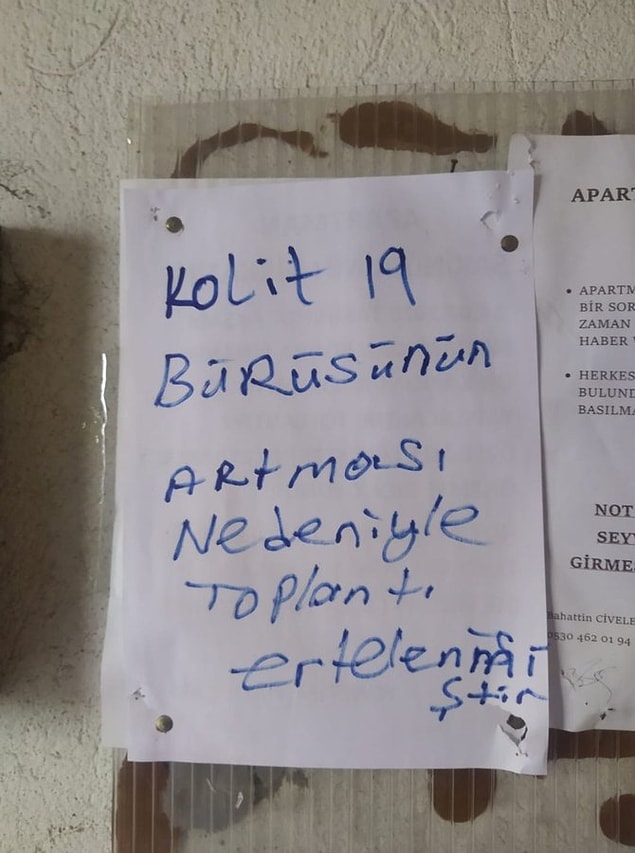 Kolit 19
BÜRÜSÜNÜN
ARTMASI
Nedeniyle
Toplantı
ertelenmi
ştir
APART
• APARTM
BİR SOR
ZAMAN
HABER
• HERKES
BULUND
BASILMA
NOT
SEYY
GİRMES
Bahattin CİVELE
0530 462 01 94